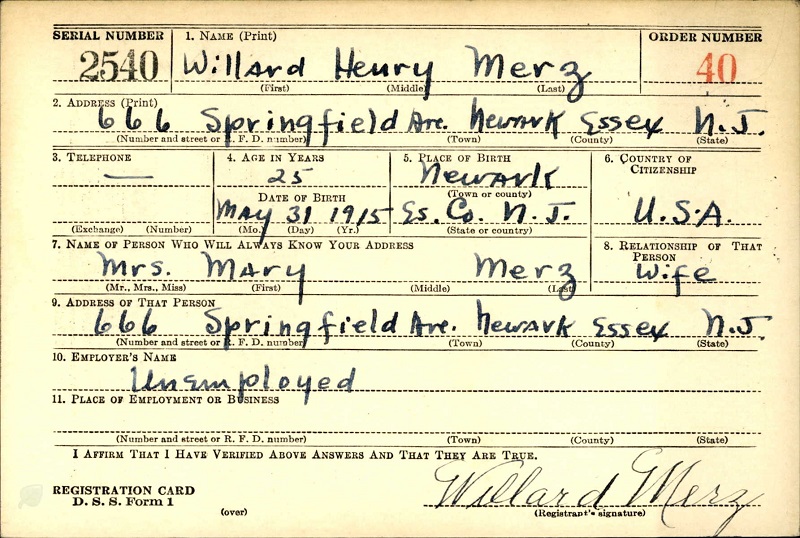 SERIAL NUMBER 1. NAME (Print) ORDER NUMBER
2540 Willard Henry Merz 40
(First) (Middle) (Last)
2. ADDRESS (Print)
666 Springfield Ave. Newark Essex N.J.
(Number and street or R. F. D. number) (Town) (County) (State)
3. TELEPHONE 4. AGE IN YEARS 5. PLACE OF BIRTH 6. COUNTRY OF CITIZENSHIP
— 25 Newark
DATE OF BIRTH (Town or county)
May 31 1915 Es. Co. N.J. U.S.A.
(Exchange) (Number) (Mo.) (Day) (Yr.) (State or country)
7. NAME OF PERSON WHO WILL ALWAYS KNOW YOUR ADDRESS 8. RELATIONSHIP OF THAT PERSON
Mrs. Mary Merz Wife
(Mr., Mrs., Miss) (First) (Middle) (Last)
9. ADDRESS OF THAT PERSON
666 Springfield Ave. Newark Essex N.J.
(Number and street or R. F. D. number) (Town) (County) (State)
10. EMPLOYER'S NAME
Unemployed
11. PLACE OF EMPLOYMENT OR BUSINESS
(Number and street or R. F. D. number) (Town) (County) (State)
I AFFIRM THAT I HAVE VERIFIED ABOVE ANSWERS AND THAT THEY ARE TRUE.
REGISTRATION CARD Willard Merz
D. S. S. Form 1 (over) (Registrant's signature)